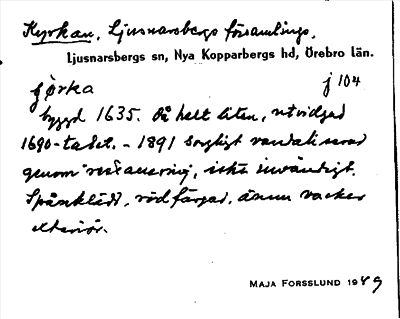 Kyrkan, Ljusnarsbergs församlings.
Ljusnarsbergs sn, Nya Kopparbergs hd, Örebro län.
kyrka j 104
byggd 1635. Då helt liten, utvidgad
1690-talet. - 1891 sorgligt vandaliserad
genom "restaurering, invändigt.
Spånklädd, rödfärgad, ännu vacker
exteriör.
MAJA FORSSLUND 1989